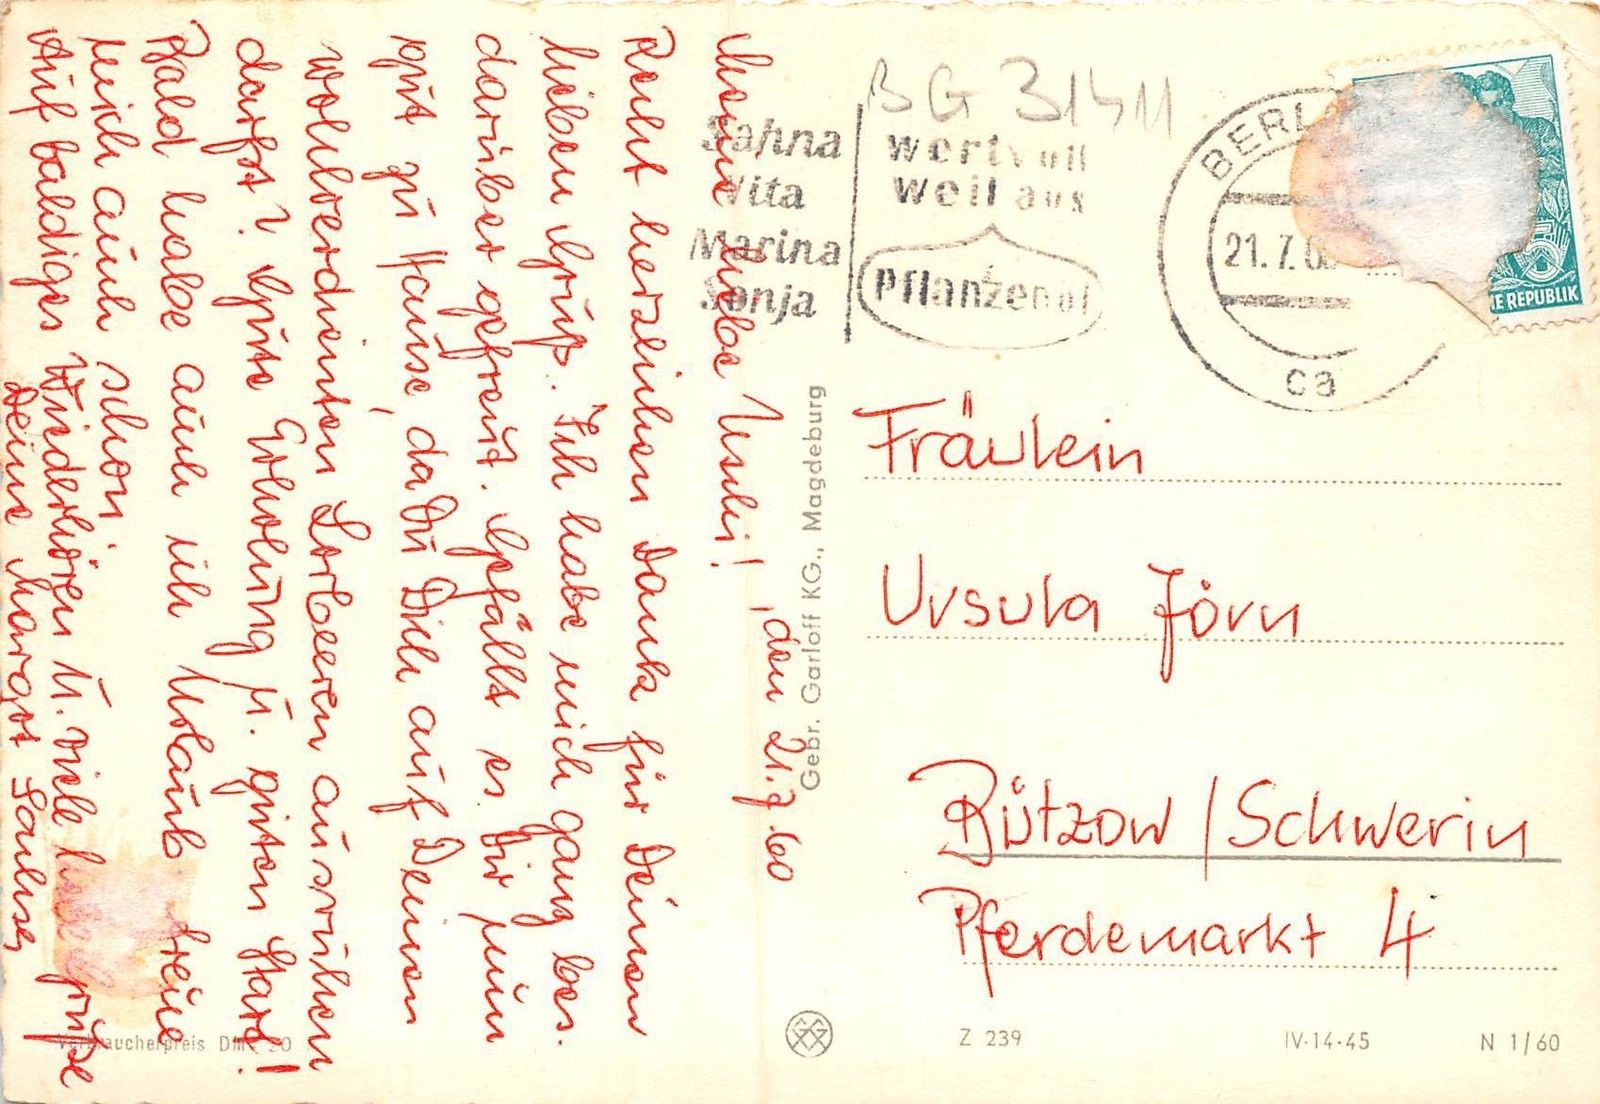 Meine liebe Uschi!
, den 21.7.60
Recht herzlichen Dank für Deinen
lieben Gruß. Ich habe mich ganz bes.
darüber gefreut. Gefällt es Dir nun
gut zu Hause, da Du Dich auf Deinen
wohlverdienten Lorbeeren ausruhen
darfst? Gute Erholung u. guten Start!
Bald habe auch ich Urlaub freue
mich auch schon
Auf baldiges Wiederhören u. viele liebe Grüße
Deine Margot
BG 31411
Sahna
Vita
Marina
Sonja
wertvoll
weil aus
Pflanzenöl
BERL
21.7.6
ca
5
E REPUBLIK
Fräulein
Ursula Jörn
Bützow / Schwerin
Pferdemarkt 4
Gebr. Garloff KG., Magdeburg
Verbraucherpreis DM -,20
Z 239
IV-14-45
N 1/60